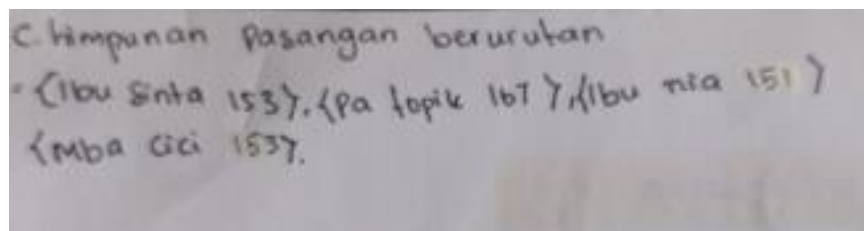 C. himpunan pasangan berurutan
- {Ibu Sinta 153}. {Pa topik 167}, {Ibu nia 151}
{Mba cici 153}.